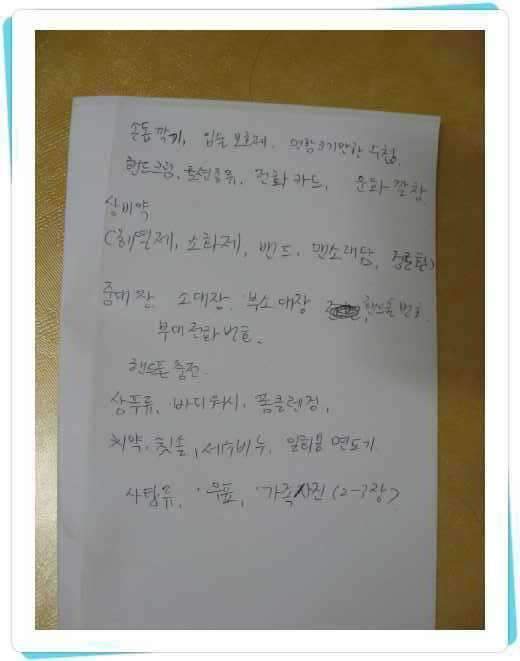 손톱깎기, 입술보호제, 명함크기만한 수첩
핸드크림, 초코종류, 전화카드, 운화깔창
상비약
(해열제, 소화제, 밴드, 맨소래담,
중대장, 소대장, 부소대장 핸드폰번호
부대전화번호,
핸드폰충전
샴푸류, 바디워시, 폼클렌징,
치약, 칫솔, 세수비누, 일회용 면도기
사탕류, 우표, 가족사진(2~3장)